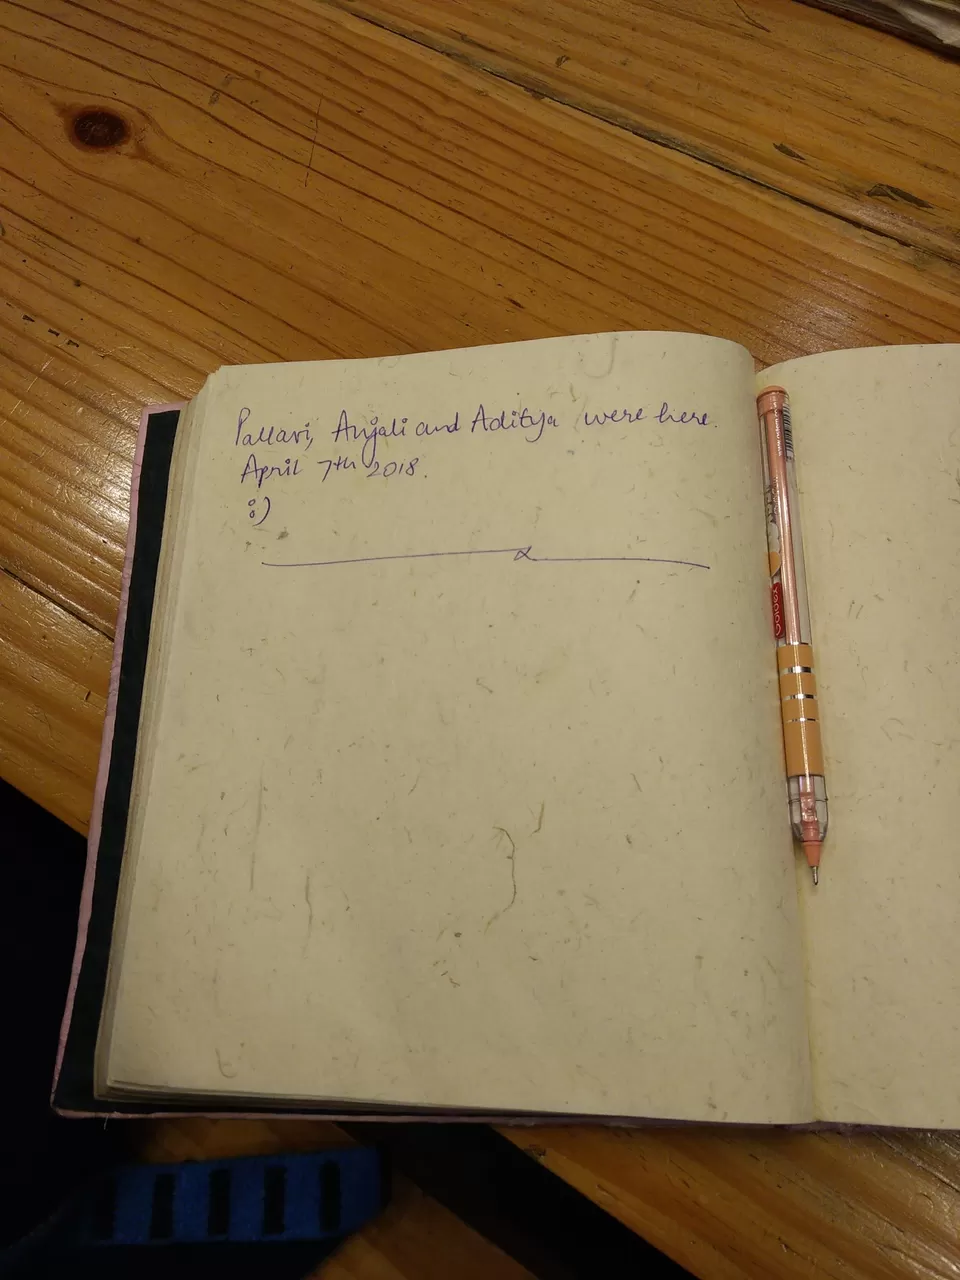 Pallavi, Anjali and Aditya were here.
April 7th 2018.
:)